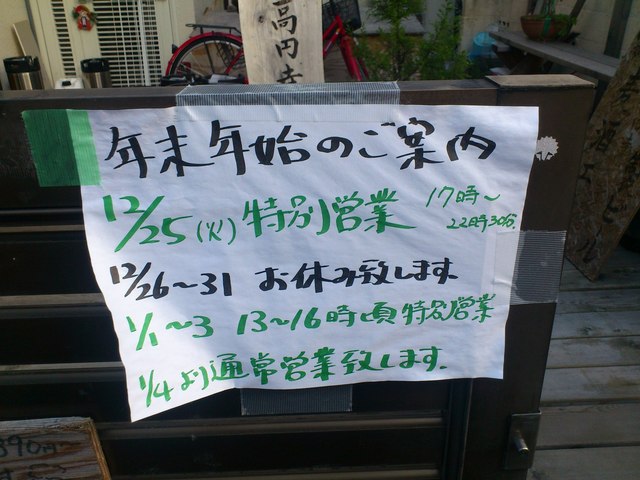 高円寺
年末年始のご案内
12/25(火)特別営業 17時～22時30分
12/26～31 お休み致します
1/1～3 13～16時頃特別営業
1/4より通常営業致します.
390円